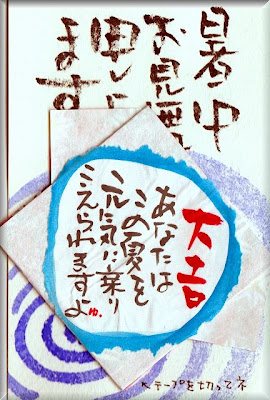 暑中
お見舞
申し上
ます
大吉
あなたは
この夏を
元気に乗り
こえられますよ
ゆ.
↖テープを切ってネ